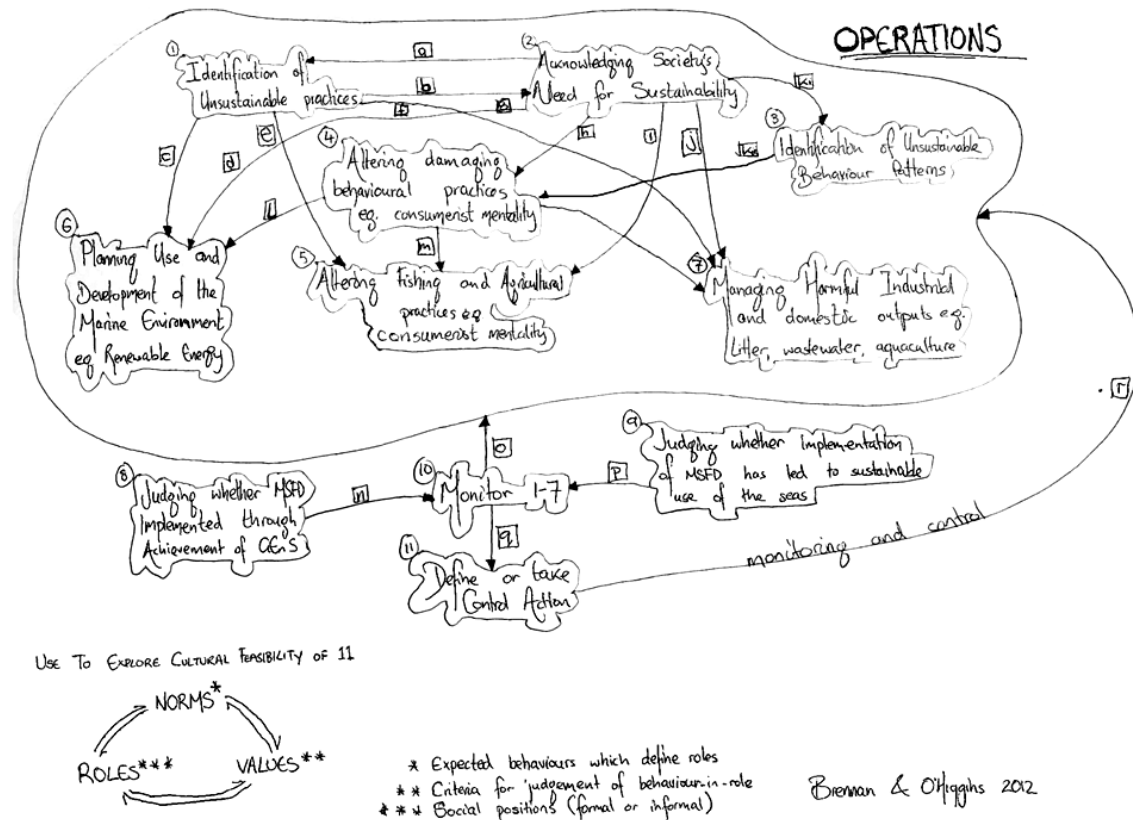 OPERATIONS
①
Identification of
Unsustainable practices
a
b
②
Acknowledging Society's
Need for Sustainability
③
Identification of Unsustainable
Behaviour Patterns
c
d
e
f
g
h
i
j
④
Altering damaging
behavioural practices
eg. consumerist mentality
l
m
⑤
Altering Fishing and Agricultural
practices eg
consumerist mentality
⑥
Planning Use and
Development of the
Marine Environment
eg Renewable Energy
⑦
Managing Harmful Industrial
and domestic outputs eg.
Litter, wastewater, aquaculture
r
o
⑧
Judging whether MSFD
Implemented through
Achievement of GES
n
⑩
Monitor 1-7
p
⑨
Judging whether implementation
of MSFD has led to sustainable
use of the seas
q
⑪
Define or take
Control Action
monitoring and control
USE TO EXPLORE CULTURAL FEASIBILITY OF 11
NORMS*
ROLES***
VALUES**
* Expected behaviours which define roles
** Criteria for judgement of behaviour-in-role
*** Social positions (formal or informal)
Brennan & O'Higgins 2012